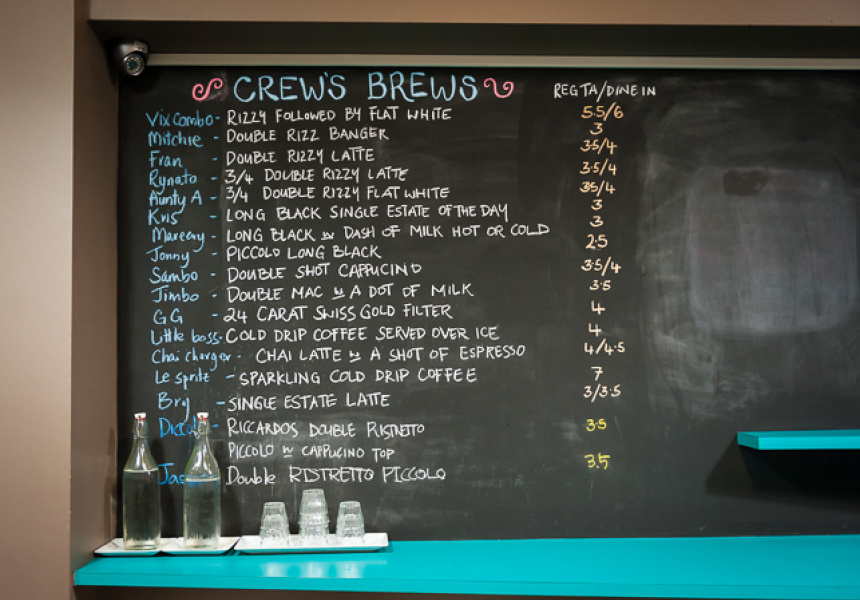 CREW'S BREWS REG TA/DINE IN
Vix Combo - RIZZY FOLLOWED BY FLAT WHITE 5.5/6
Mitchie - DOUBLE RIZZ BANGER 3
Fran - DOUBLE RIZZY LATTE 3.5/4
Rynato - 3/4 DOUBLE RIZZY LATTE 3.5/4
Aunty A - 3/4 DOUBLE RIZZY FLAT WHITE 3.5/4
Kris - LONG BLACK SINGLE ESTATE OF THE DAY 3
Mareeay - LONG BLACK w DASH OF MILK HOT OR COLD 3
Jonny - PICCOLO LONG BLACK 2.5
Sambo - DOUBLE SHOT CAPPUCINO 3.5/4
Jimbo - DOUBLE MAC w A DOT OF MILK 3.5
GG - 24 CARAT SWISS GOLD FILTER 4
Little boss - COLD DRIP COFFEE SERVED OVER ICE 4
Chai charger - CHAI LATTE w A SHOT OF ESPRESSO 4/4.5
Le spritz - SPARKLING COLD DRIP COFFEE 7
Bry - SINGLE ESTATE LATTE 3/3.5
- RICCARDOS DOUBLE RISTRETTO 3.5
PICCOLO w CAPPUCINO TOP
Double RISTRETTO PICCOLO 3.5